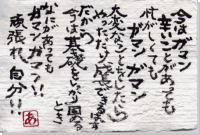 今はガマン
辛いことがあっても
忙がしくても
ガマンガマン
大変なことをしたら
やったぶん
できるはず
だから
今は基礎をしっかり固める
とき
なにがあっても
ガマンガマン!!
頑張れ、自分!!
あ